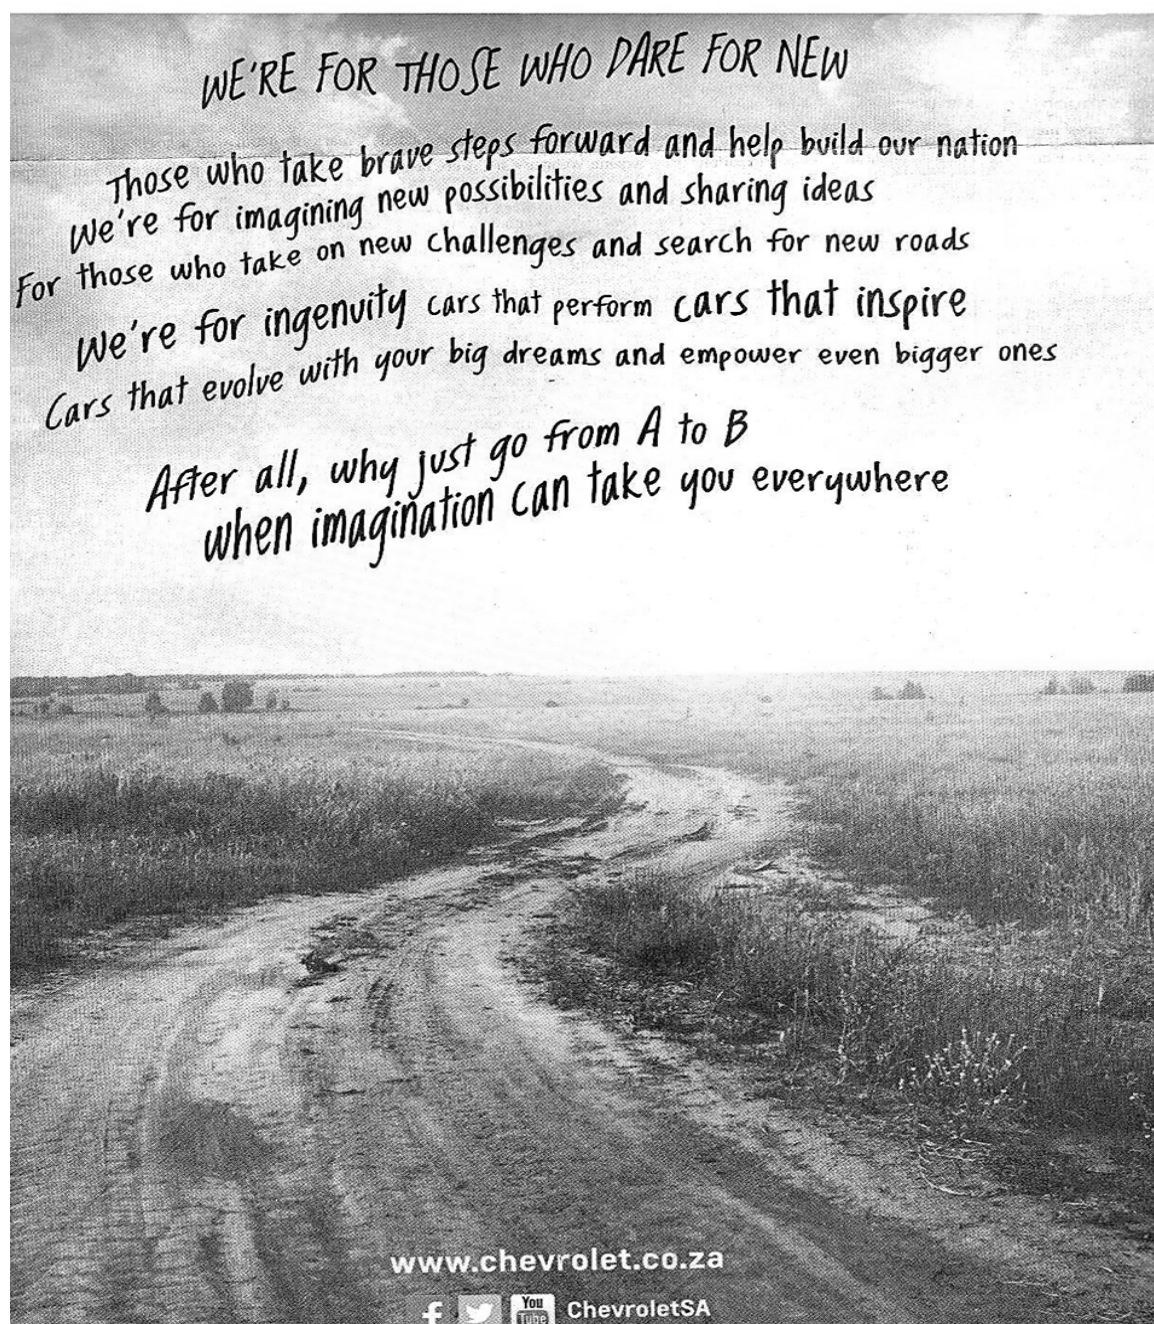 WE'RE FOR THOSE WHO DARE FOR NEW
Those who take brave steps forward and help build our nation
We're for imagining new possibilities and sharing ideas
For those who take on new challenges and search for new roads
We're for ingenuity cars that perform cars that inspire
Cars that evolve with your big dreams and empower even bigger ones
After all, why just go from A to B
when imagination can take you everywhere
www.chevrolet.co.za
f You Tube ChevroletSA